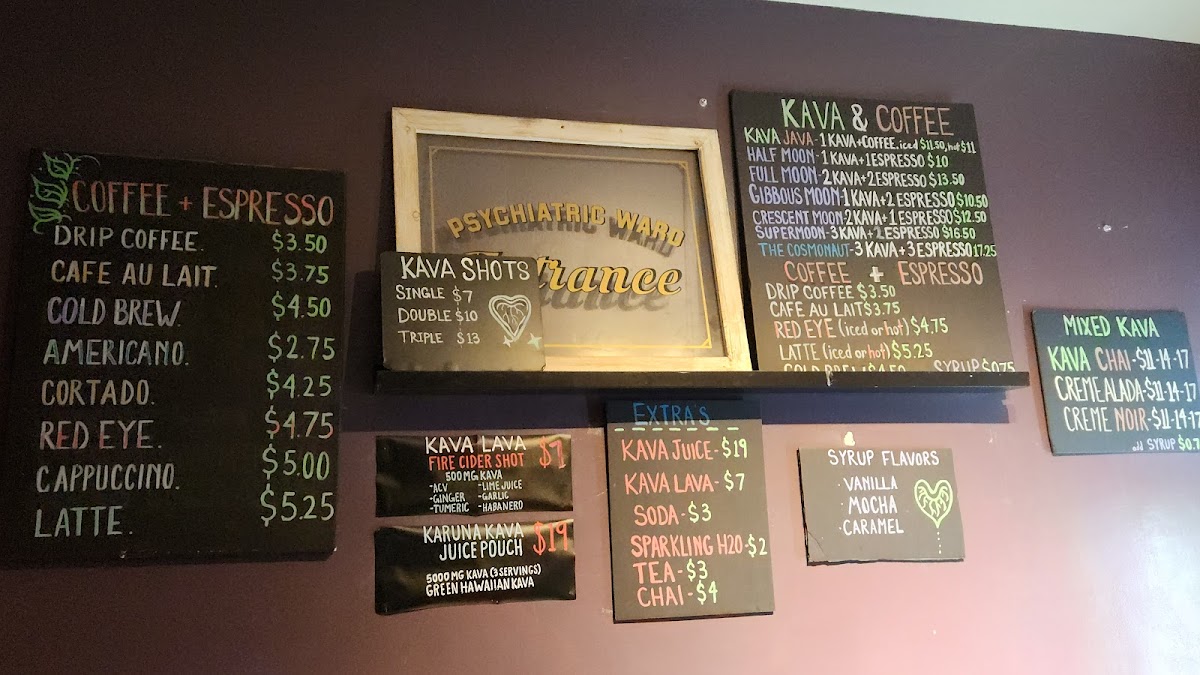 COFFEE + ESPRESSO
DRIP COFFEE. $3.50
CAFE AU LAIT. $3.75
COLD BREW. $4.50
AMERICANO. $2.75
CORTADO. $4.25
RED EYE. $4.75
CAPPUCCINO. $5.00
LATTE. $5.25
PSYCHIATRIC WARD
Entrance
KAVA SHOTS
SINGLE $7
DOUBLE $10
TRIPLE $13
KAVA & COFFEE
KAVA JAVA-1 KAVA+COFFEE.iced $11.50, hot $11
HALF MOON-1 KAVA+1 ESPRESSO $10
FULL MOON-2 KAVA+2 ESPRESSO $13.50
GIBBOUS MOON-1 KAVA+2 ESPRESSO $10.50
CRESCENT MOON-2 KAVA+1 ESPRESSO $12.50
SUPERMOON-3 KAVA+2 ESPRESSO $16.50
THE COSMONAUT-3 KAVA+3 ESPRESSO 17.25
COFFEE + ESPRESSO
DRIP COFFEE $3.50
CAFE AU LAIT $3.75
RED EYE (iced or hot) $4.75
LATTE (iced or hot) $5.25
COLD BREW $4.50 SYRUP $0.75
MIXED KAVA
KAVA CHAI-$11-14-17
CREMEALADA-$11-14-17
CREME NOIR-$11-14-17
add SYRUP $0.7
KAVA LAVA
FIRE CIDER SHOT $7
500 MG KAVA
-ACV -LIME JUICE
-GINGER -GARLIC
-TUMERIC -HABANERO
KARUNA KAVA
JUICE POUCH $19
5000 MG KAVA (3 SERVINGS)
GREEN HAWAIIAN KAVA
EXTRA'S
KAVA JUICE-$19
KAVA LAVA-$7
SODA-$3
SPARKLING H20-$2
TEA-$3
CHAI-$4
SYRUP FLAVORS
·VANILLA
·MOCHA
·CARAMEL